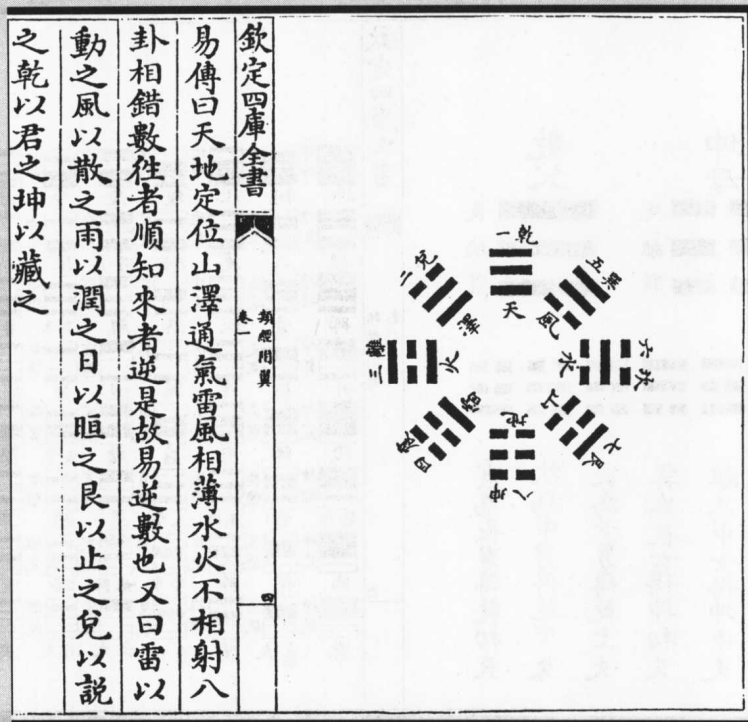 一乾
天
二兌
澤
三離
火
四震
雷
五巽
風
六坎
水
七艮
山
八坤
地
欽定四庫全書
類經附翼
卷一
四
易傳曰天地定位山澤通氣雷風相薄水火不相射八
卦相錯數徃者順知來者逆是故易逆數也又曰雷以
動之風以散之雨以潤之日以晅之艮以止之兌以説
之乾以君之坤以藏之